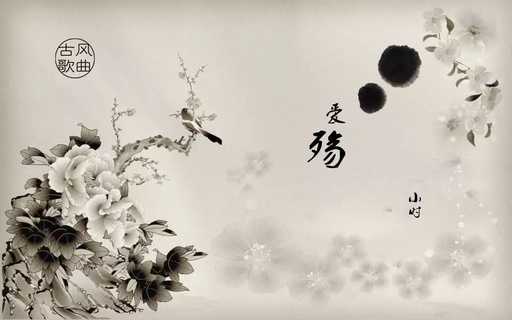 古风
歌曲
爱
殇
小时